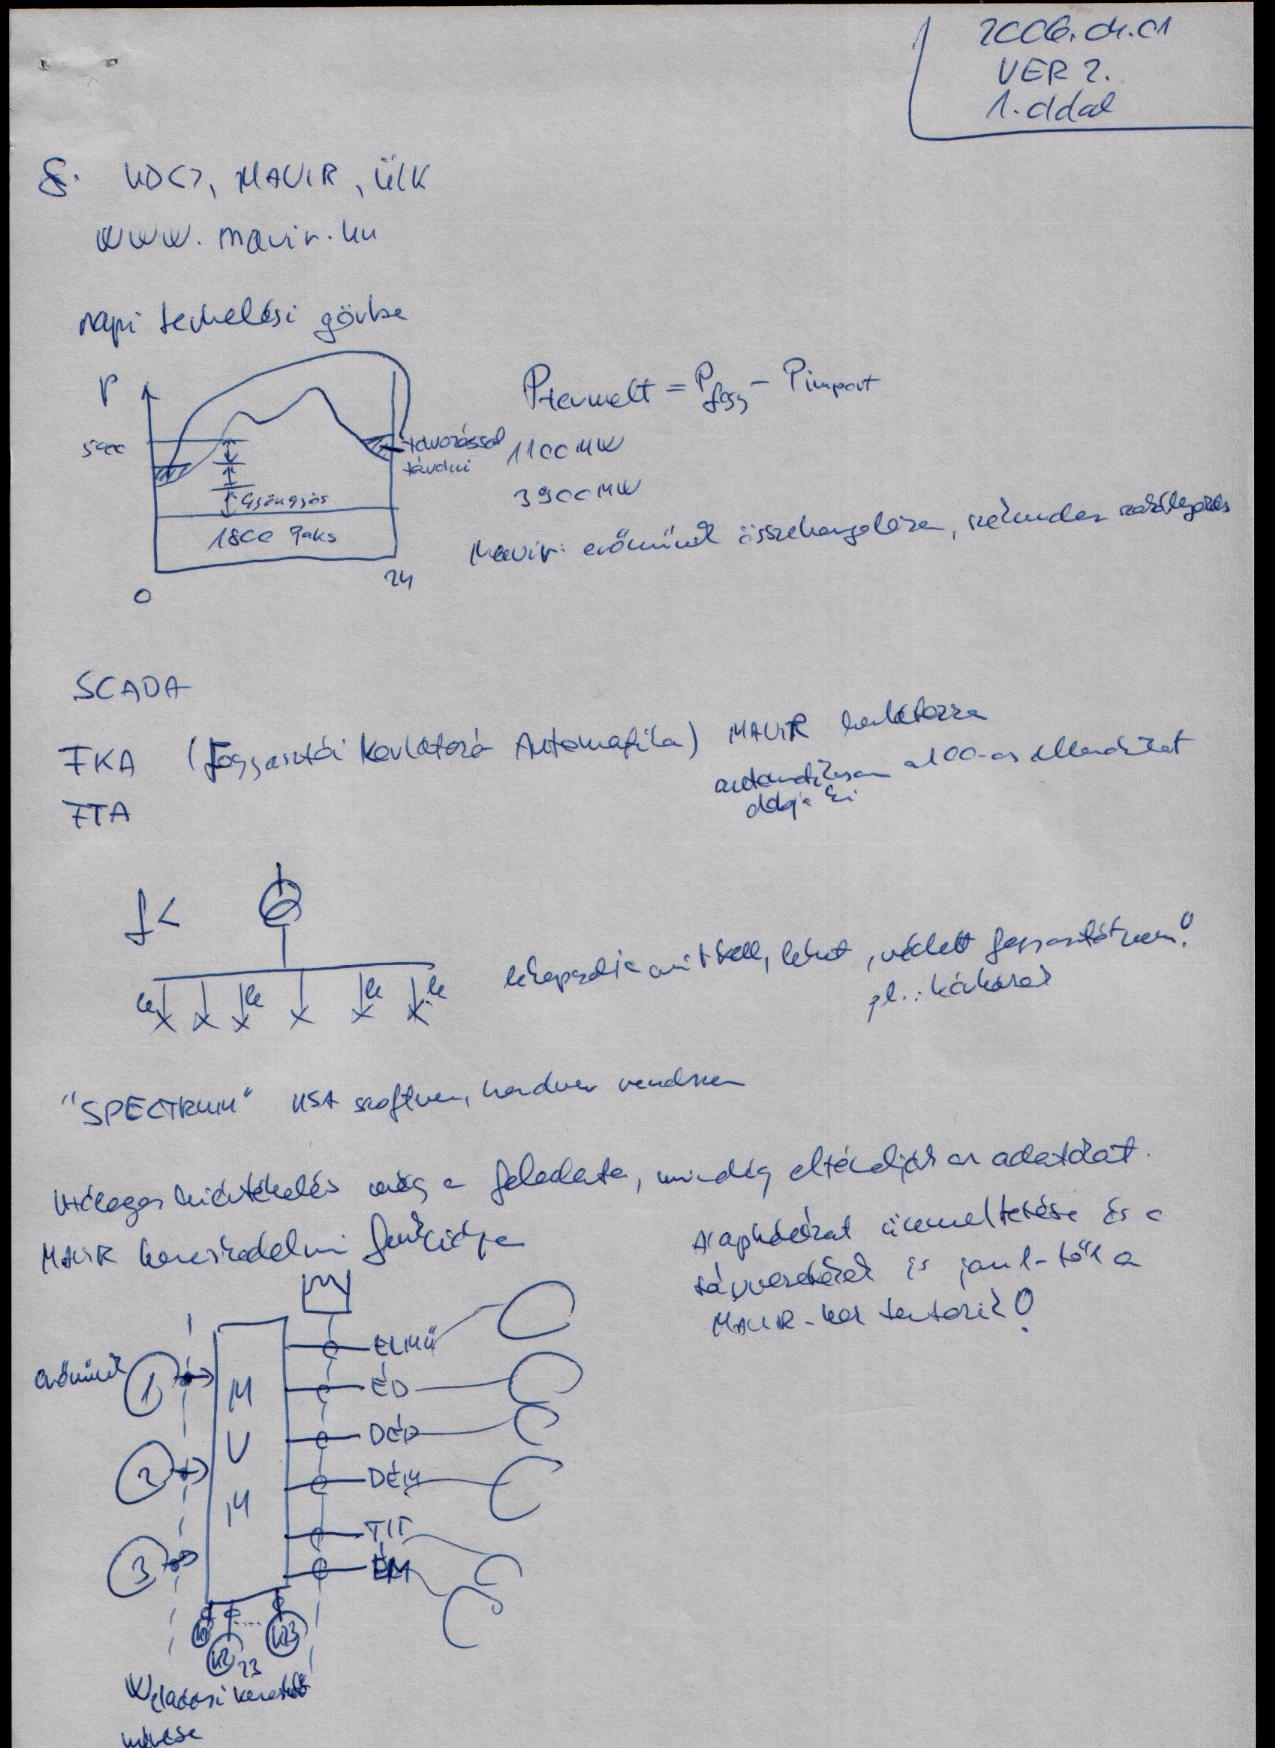 2006.04.01
VER 2.
1. oldal
8. KDSZ, MAVIR, ÜIK
www.mavir.hu
napi termelési görbe
P
5400
távozással
távolni
Gyöngyös
1800 Paks
0
24
Ptermelt = Pfogy - Pimport
1100 MW
3900 MW
Mavir: erőművek összehangolása, szekunder szabályozás
SCADA
FKA (Fogyasztói Korlátozó Automatika) MAVIR korlátozza
automatikusan a 100-as ellenőrzőket
dobja ki
FTA
f<
le
le
le
le
lekapcsolja amit kell, lehet, védett fogyasztót nem!
pl.: kórházak
"SPECTRUM" USA szoftver, hardver rendszer
Utólagos kiértékelés még a feladata, mindig eltárolják az adatokat.
MAVIR kereskedelmi funkciója
Alaphálózat üzemeltetése és a
távvezetékek is jan 1-től a
MAVIR-hoz tartozik!
erőművek
1
2
3
MVM
ELMŰ
ÉD
DÉD
DÉM
TIT
ÉM
K2
K23
23